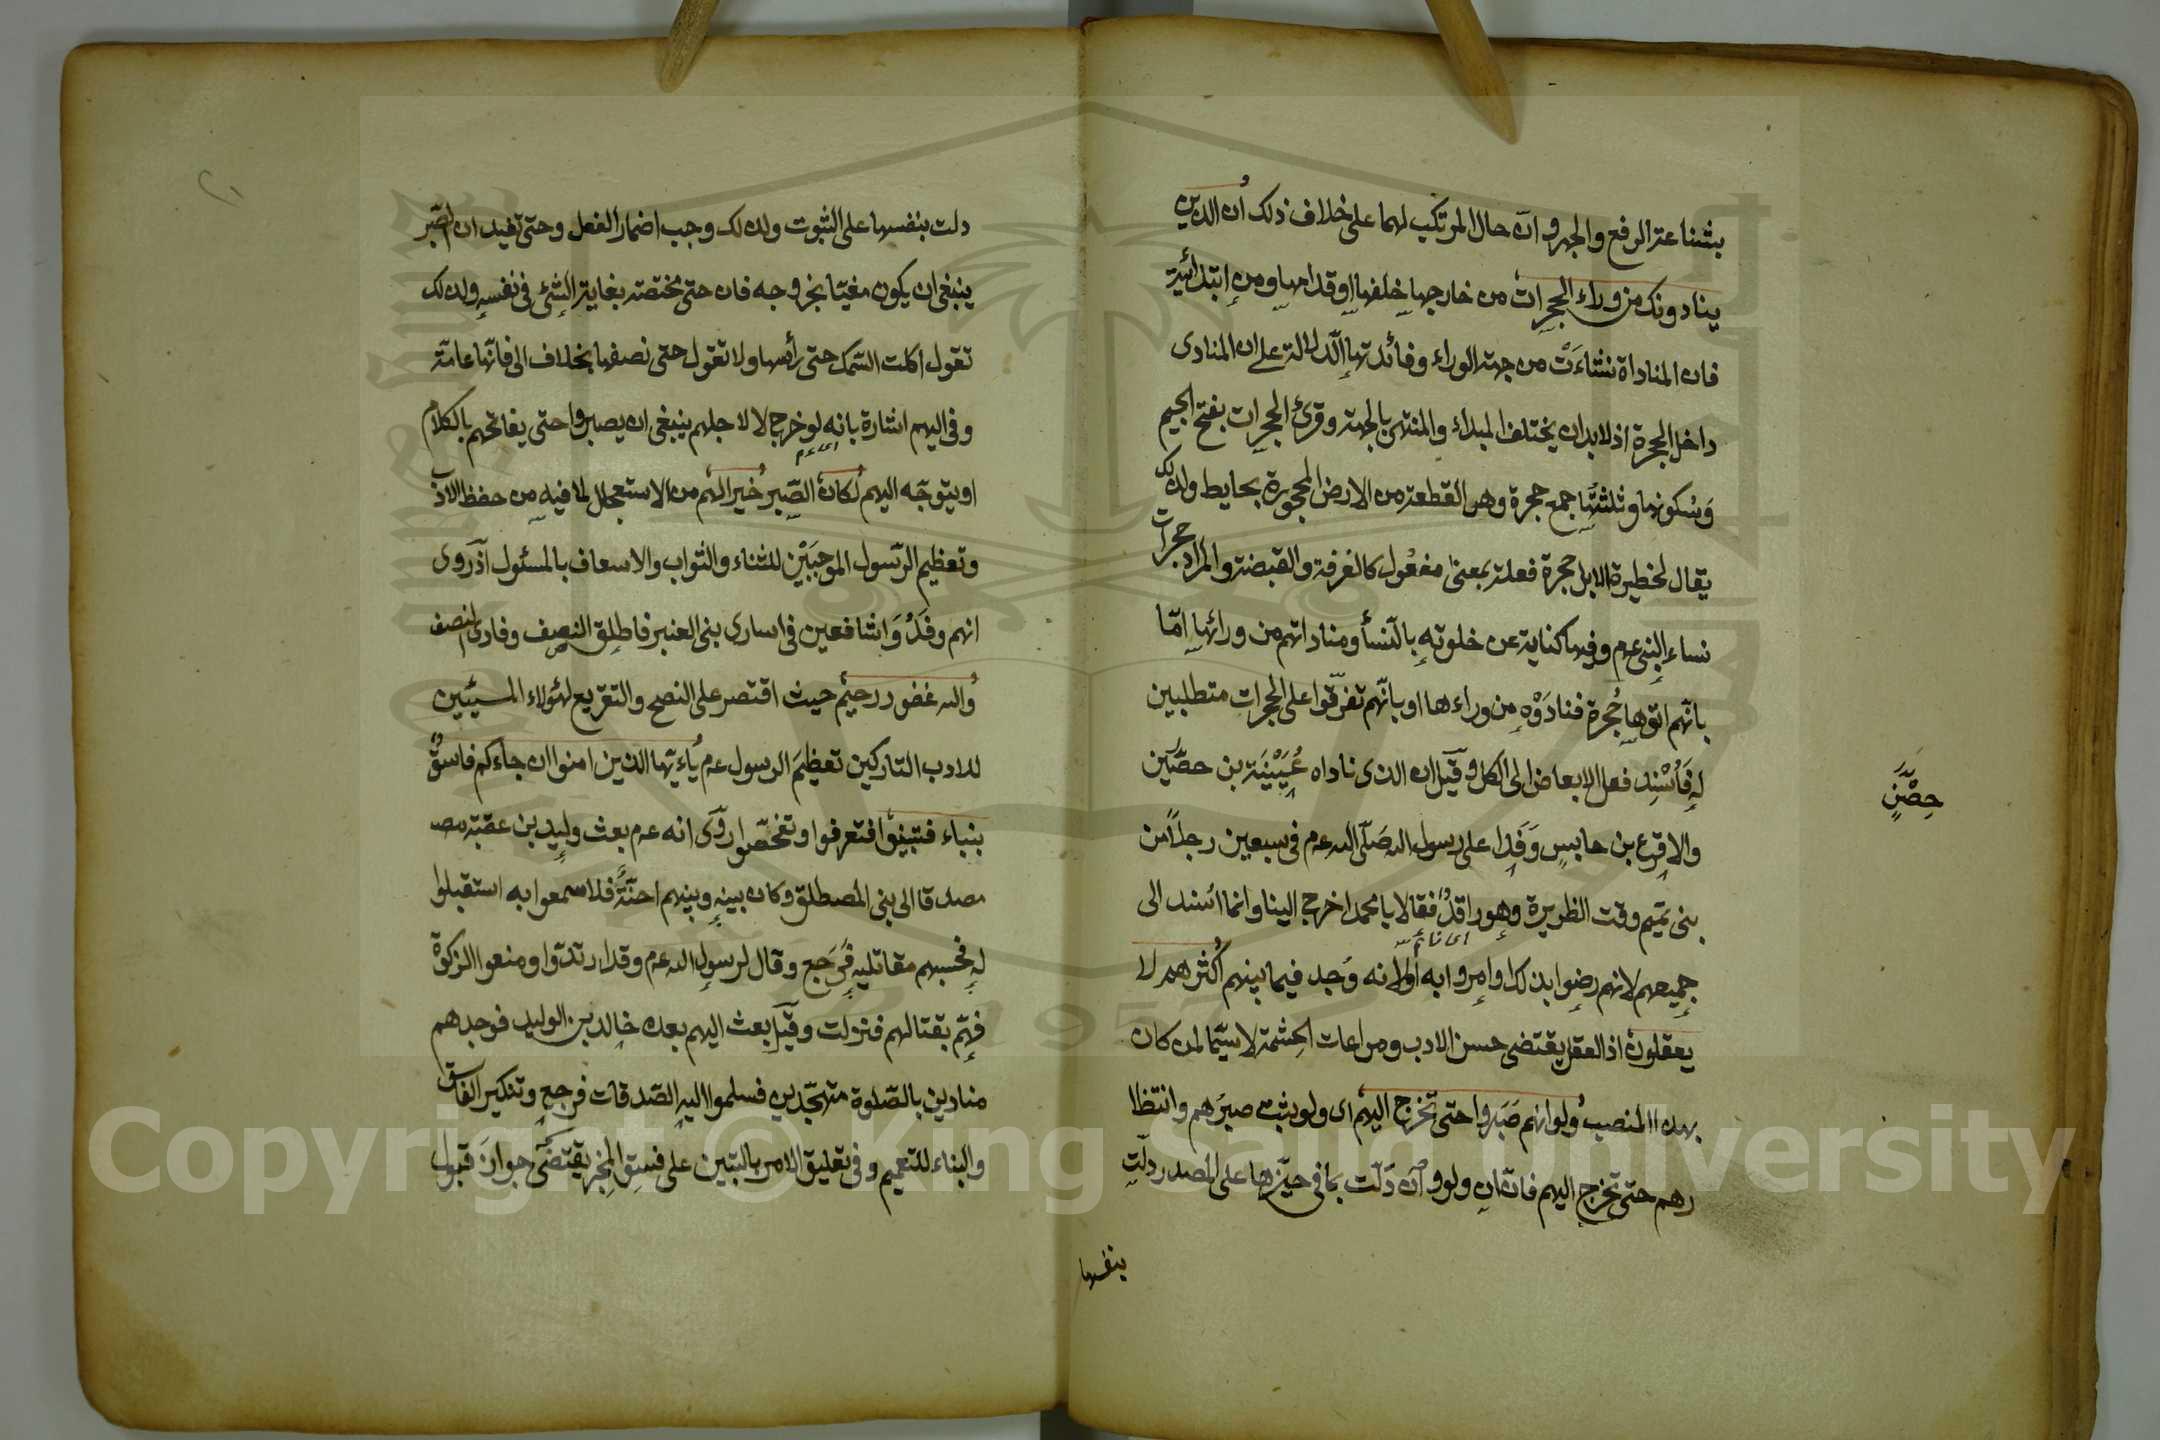 بشناعة الرفع والجهر وان حال المرتكب لهما على خلاف ذلك ان الذين
ينادونك من وراء الحجرات من خارجها خلفها او قدامها ومن ابتدائية
فان المناداة نشاءت من جهة الوراء وفائدتها الدلالة على ان المنادى
داخل الحجرة اذ لا بد ان يختلف المبداء والمنتهى بالجهة وقرئ الحجرات بفتح الجيم
وسكونها وثلثتها جمع حجرة وهى القطعة من الارض المحجورة بحايط ولذلك
يقال لحظيرة الابل حجرة فعلة بمعنى مفعول كالغرفة والقبضة والمراد حجرات
نساء النبى عم وفيها كناية عن خلوته بالنسأ ومناداتهم من ورائها امّا
بانّهم اتوها حُجرة فنادَوْه من وراءها او بانّهم تفرّقوا على الحجرات متطلبين
له فَأُسْنِد فعل الابعاض الى الكل وقيل ان الذى ناداه عُيَيْنَة بن حصّين
حِصْنٍ
والاقرع بن حابس وَفَدا على رسول الله صلّى الله عم فى سبعين رجلاً من
بنى تميم وقت الظهيرة وهو راقدٌ فقالا يا محمد اخرج الينا وانما اسند الى
اى نائم
جميعهم لانهم رضوا بذلك او امروا به او لانه وُجد فيما بينهم اكثرهم لا
يعقلون اذ العقل يقتضى حسن الادب ومراعات الحشمة لا سيّما لمن كان
بهذا المنصب ولو انهم صَبَروا حتى تخرج اليهم اى ولو يثبت صبرهم وانتظا
رهم حتى تخرج اليهم فان ان ولو وان دلّت بما فى حيّزها على المصدر دلّت
بنفسها
دلت بنفسها على الثبوت ولذلك وجب اضمار الفعل وحتى تفيد ان الصّبر
ينبغى ان يكون مغيّا بخروجه فان حتى مختصة بغاية الشئ فى نفسه ولذلك
تقول اكلت السّمك حتى رأسها ولا تقول حتى نصفها بخلاف الى فانّها عامّة
وفى اليهم اشارة بانه لو خرج لا لاجلهم ينبغى ان يصبروا حتى يفاتحهم بالكلام
او يتوجّه اليهم لكان الصّبر خيرا لهم من الاستعجال لما فيه من حفظ الادب
وتعظيم الرّسول الموجبَيْن للثناء والثواب والاسعاف بالمسئول اذ روى
انهم وفَدُوَا شافعين فى اسارى بنى العنبر فاطلق النصف وفادى النصف
والله غفور رحيم حيث اقتصر على النصح والتقريع لهٶلاء المسيئين
للادب التاركين تعظيمَ الرسول عم ياءيّها الذين امنوا ان جاءكم فاسقٌ
بنباء فتبيّنوا فتعرفوا وتفحّصوا روى انه عم بعث وليد بن عقبة مصـ
مصدقا الى بنى المصطلق وكان بينه وبينهم احنّةٌ فلا سمعوا به استقبلوا
له فحسبهم مقاتليه فَرَجع وقال لرسول الله عم وقد ارتدّوا ومنعوا الزكوة
فهمّ بقتالهم فنزلت وقيل بعث اليهم بعده خالد بن الوليد فوجدهم
منادين بالصّلوة متهجّدين فسلموا اليه الصّدقات فرجع وتنكير الفاسق
والبناء للتعميم وفى تعليق الامر بالتبيّن على فسق المخبر يقتضى جواز قبول